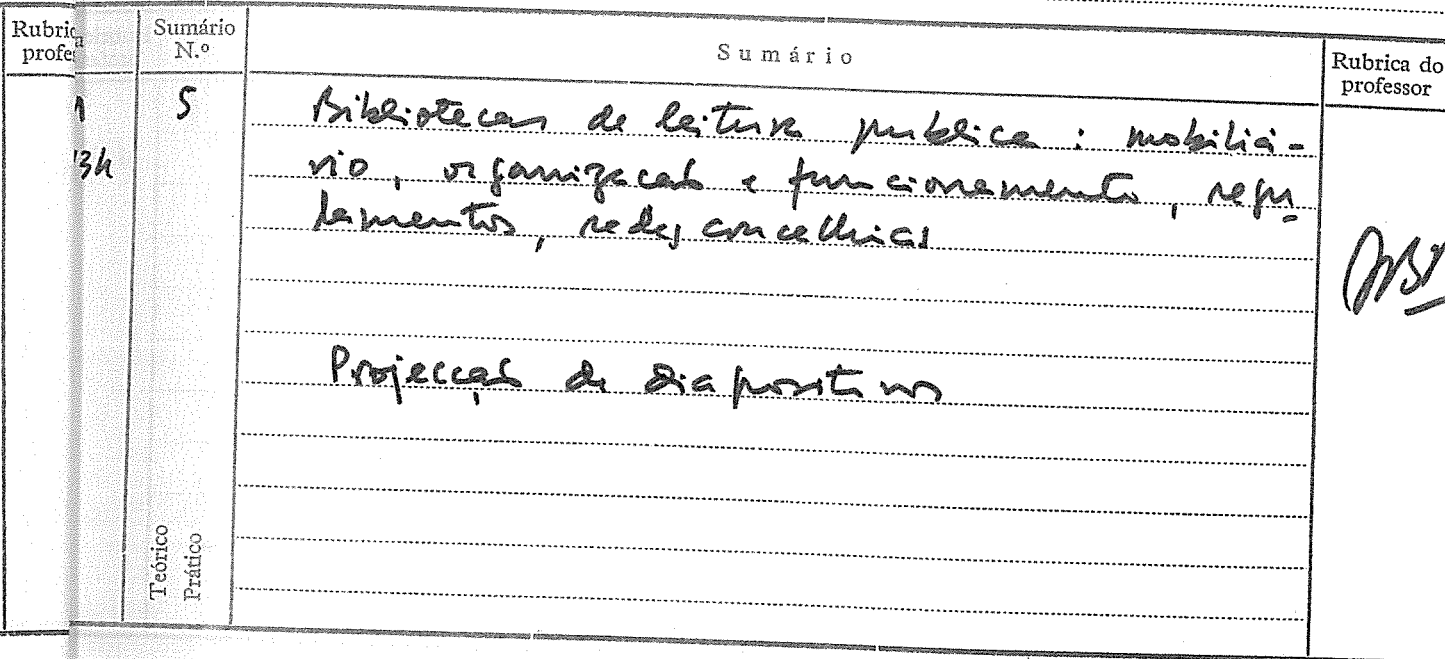 Rubrica
profes
Sumário
N.º
Sumário
Rubrica do
professor
5
13h
Bibliotecas de leitura publica : mobiliá-
rio, organização e funcionamento, regu-
lamentos, redes concelhias
Projecção de diapositivos
Teórico
Prático